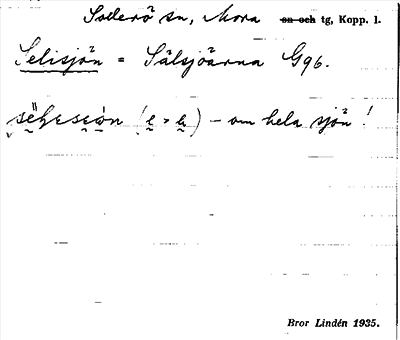 Solerö sn, Mora on och tg, Kopp. l.
Selisjön = Sälsjöarna G96.
(e > a) – om hela sjön!
Bror Lindén 1935.